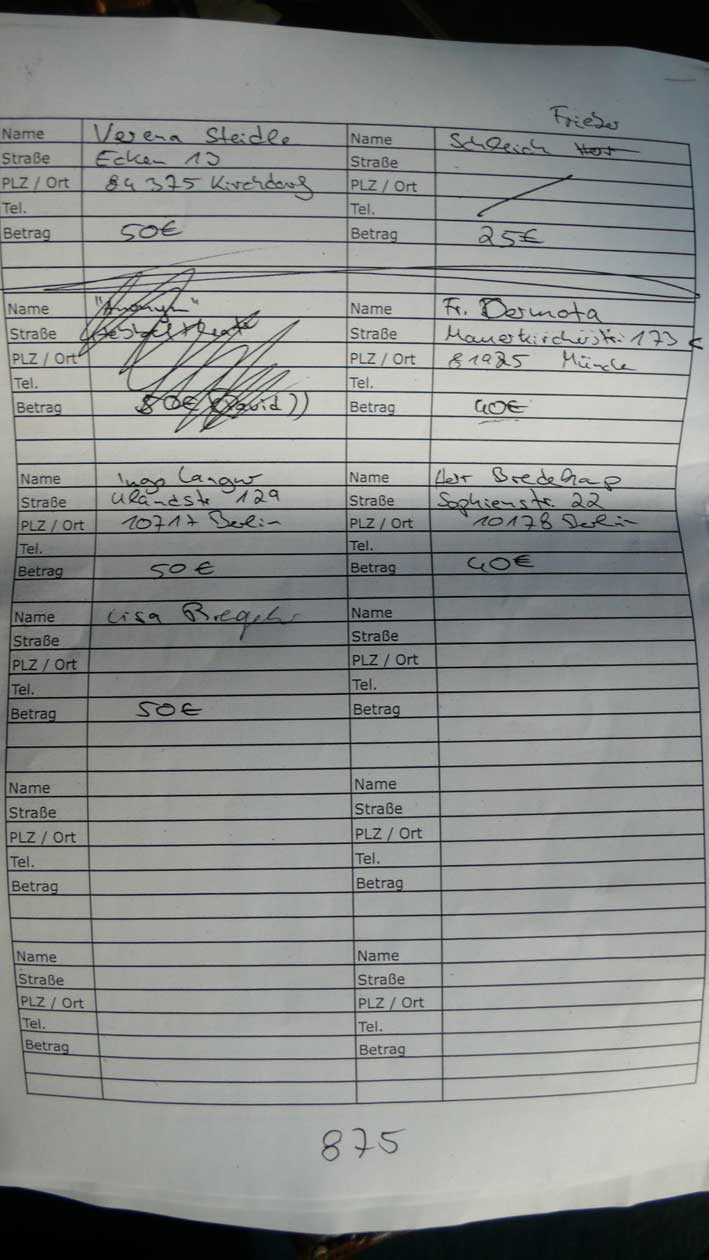 Frieder
Name Verena Steidle Name Schleich
Straße Ecken 13 Straße
PLZ / Ort 84375 Kirchdorf PLZ / Ort
Tel. Tel.
Betrag 50€ Betrag 25€
Name "Anonym" Name Fr. Dermota
Straße Straße Mauerkircherstr. 173
PLZ / Ort PLZ / Ort 81925
Tel. Tel.
Betrag 50€ (David)) Betrag 40€
Name Ingo Langner Name Herr Bredekamp
Straße Uhlandstr. 129 Straße Sophienstr. 22
PLZ / Ort 10717 Berlin PLZ / Ort 10178 Berlin
Tel. Tel.
Betrag 50€ Betrag 40€
Name Lisa Name
Straße Straße
PLZ / Ort PLZ / Ort
Tel. Tel.
Betrag 50€ Betrag
Name Name
Straße Straße
PLZ / Ort PLZ / Ort
Tel. Tel.
Betrag Betrag
Name Name
Straße Straße
PLZ / Ort PLZ / Ort
Tel. Tel.
Betrag Betrag
875